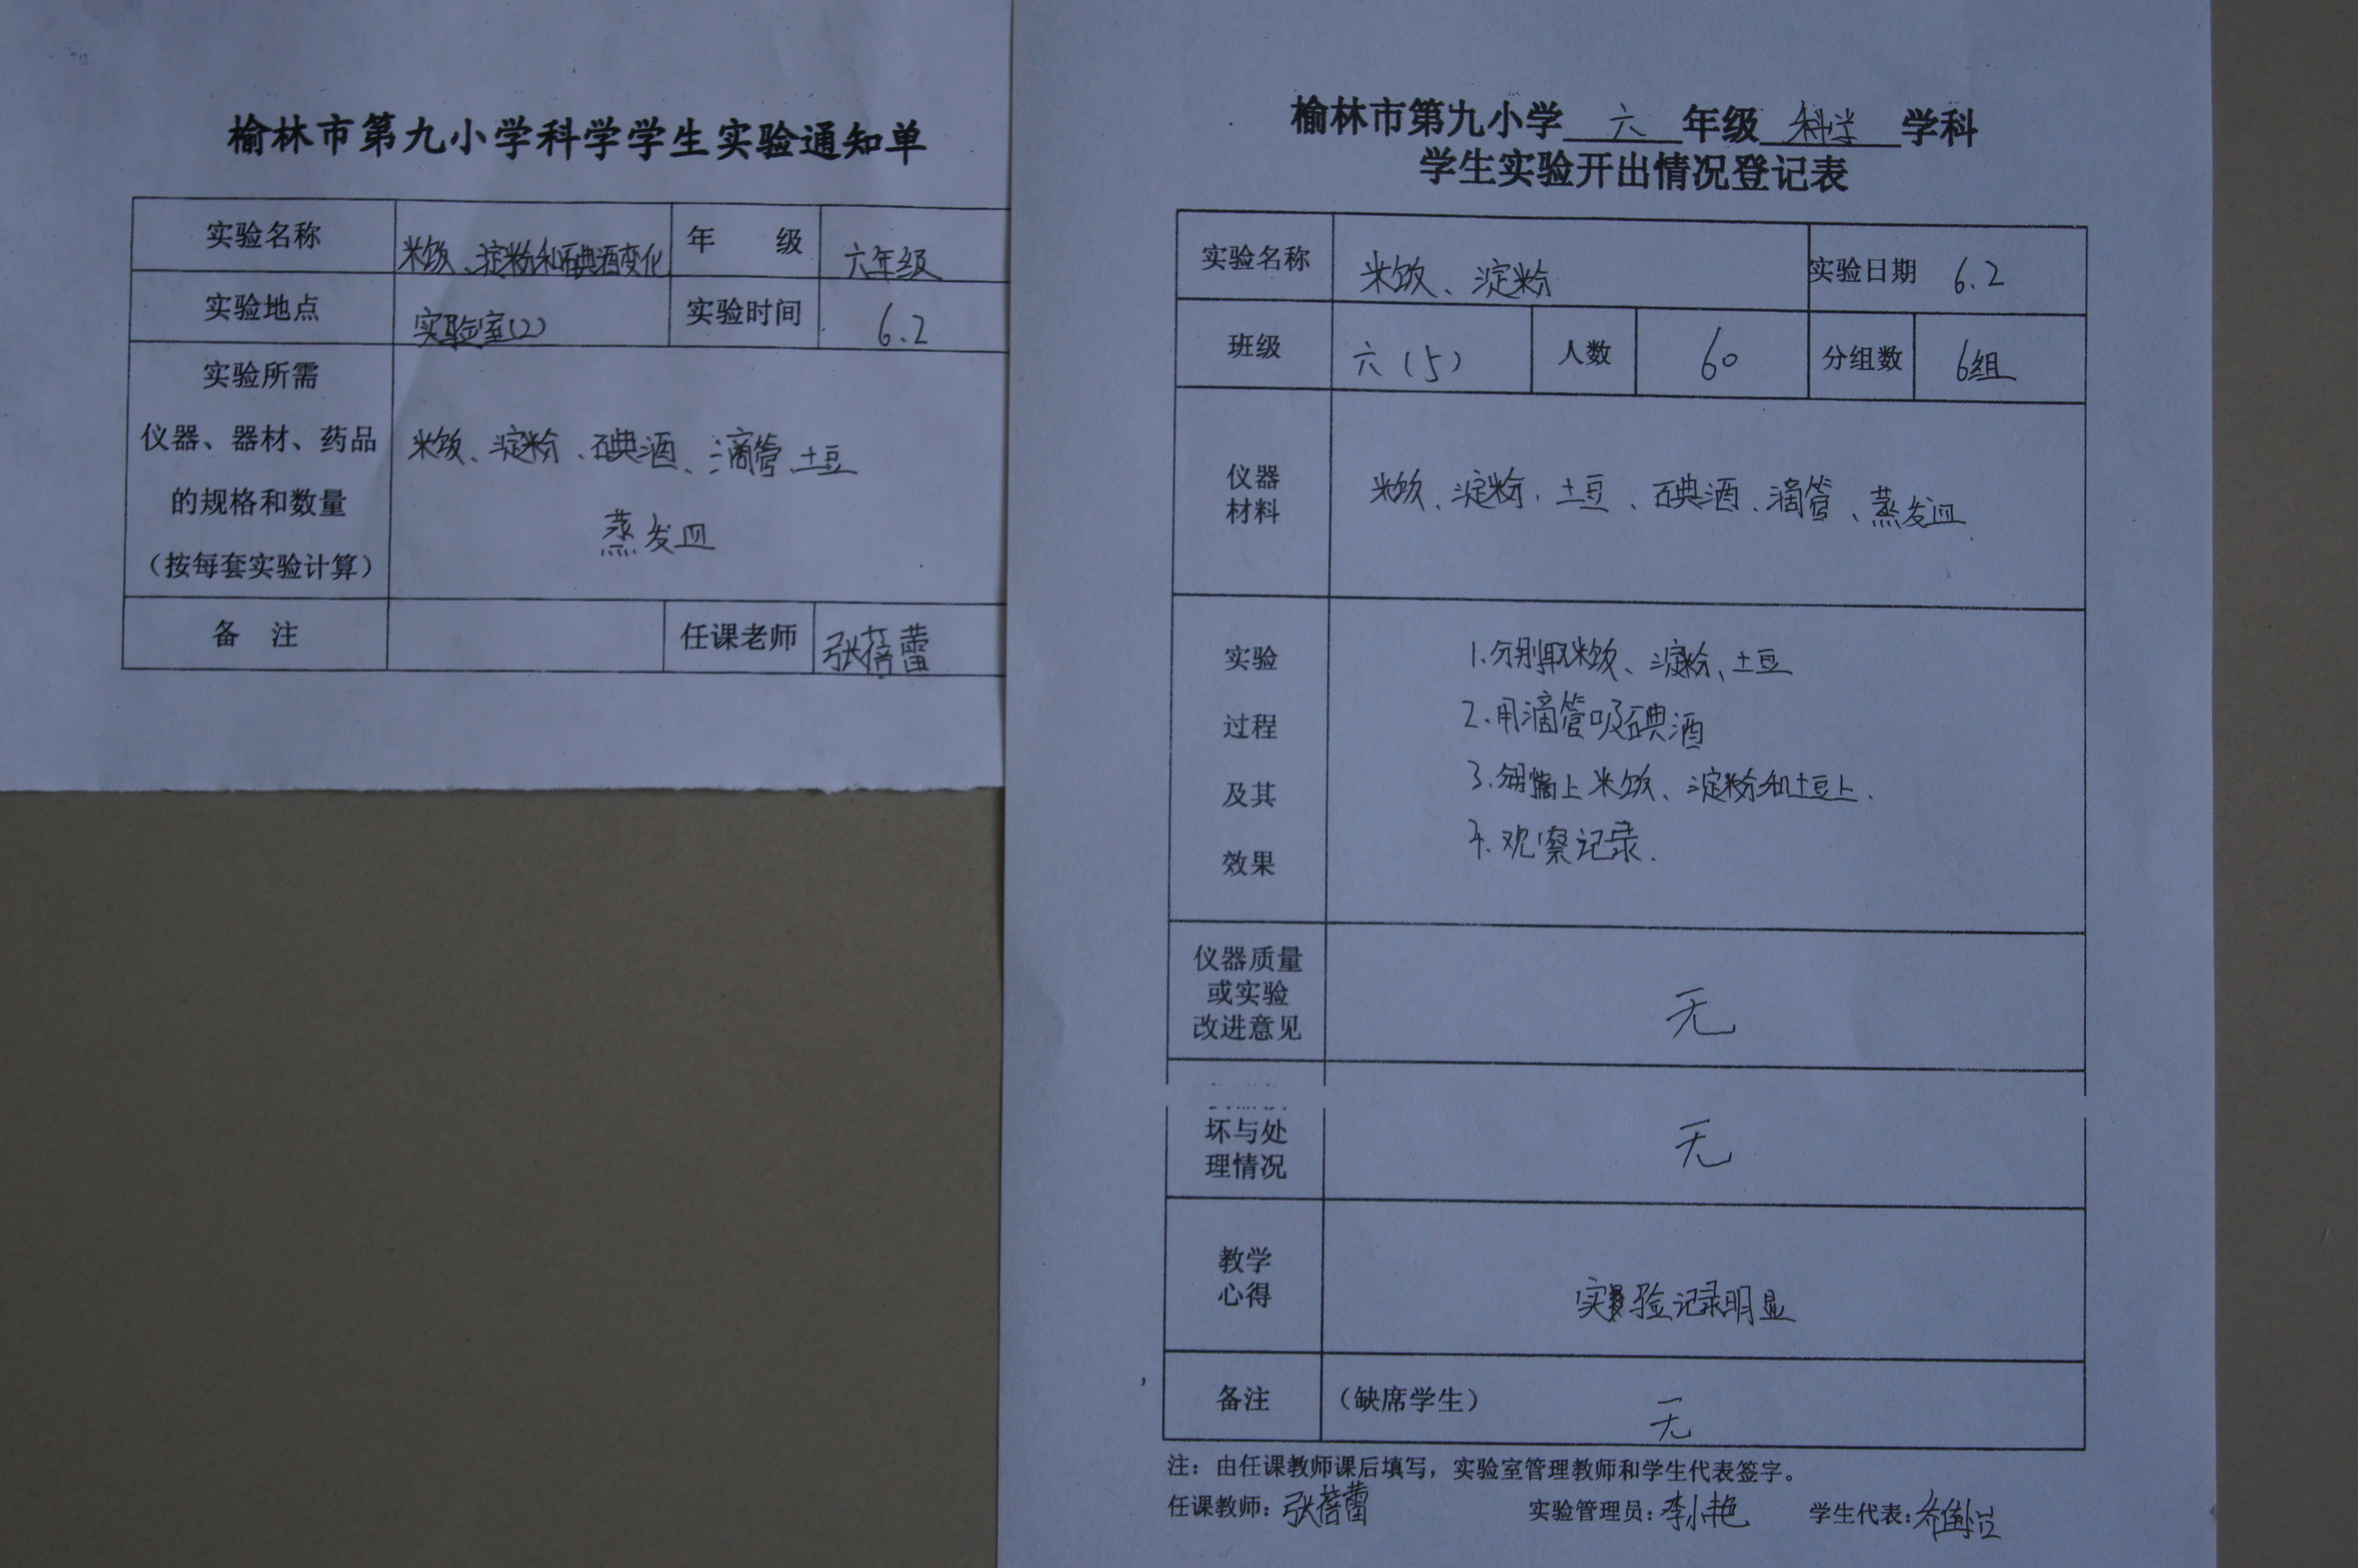 榆林市第九小学科学学生实验通知单
实验名称 米饭、淀粉和碘酒变化 年 级 六年级
实验地点 实验室(2) 实验时间 6.2
实验所需
仪器、器材、药品
的规格和数量
(按每套实验计算)
米饭、淀粉、碘酒、滴管、土豆
蒸发皿
备 注 任课老师 张蓓蕾
榆林市第九小学 六 年级 科学 学科
学生实验开出情况登记表
实验名称 米饭、淀粉 实验日期 6.2
班级 六(5) 人数 60 分组数 6组
仪器
材料
米饭、淀粉、土豆、碘酒、滴管、蒸发皿
实验
过程
及其
效果
1.分别取米饭、淀粉、土豆
2.用滴管吸碘酒
3.分别滴上米饭、淀粉和土豆上.
4.观察记录.
仪器质量
或实验
改进意见
无
坏与处
理情况
无
教学
心得
实验记录明显
备注 (缺席学生) 无
注：由任课教师课后填写，实验室管理教师和学生代表签字。
任课教师：张蓓蕾 实验管理员：李小艳 学生代表：